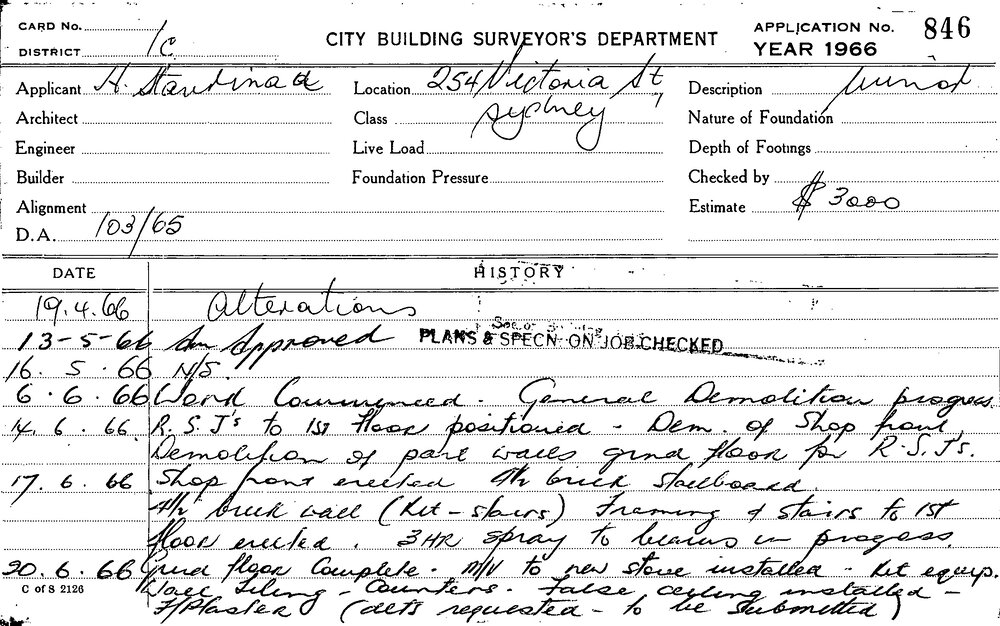 CARD No.
DISTRICT 1C
CITY BUILDING SURVEYOR'S DEPARTMENT
APPLICATION No. 846
YEAR 1966
Applicant H. Location 254 Victoria St, Description Minor
Architect Class Sydney Nature of Foundation
Engineer Live Load Depth of Footings
Builder Foundation Pressure Checked by
Alignment Estimate $ 3000
D.A. 103/65
DATE HISTORY
19.4.66 Alterations
13-5-66 Approved PLANS & SPECN ON JOB CHECKED
16.5.66 N/S.
6.6.66 Work Commenced. General Demolition progress.
14.6.66. R.S.J's to 1st floor positioned - Dem. of Shop front,
Demolition of part walls grnd floor for R.S.J's.
17.6.66 Shop front erected 4½ brick stallboard.
4½ brick wall (Kit-stairs) Framing & stairs to 1st
floor erected. 3HR spray to beams in progress.
20.6.66 Grnd floor Complete. M/V to new stove installed - Kit equip.
Wall Tiling - Counters. False ceiling installed -
F/Plaster (dets requested - to be submitted)
C of S 2126